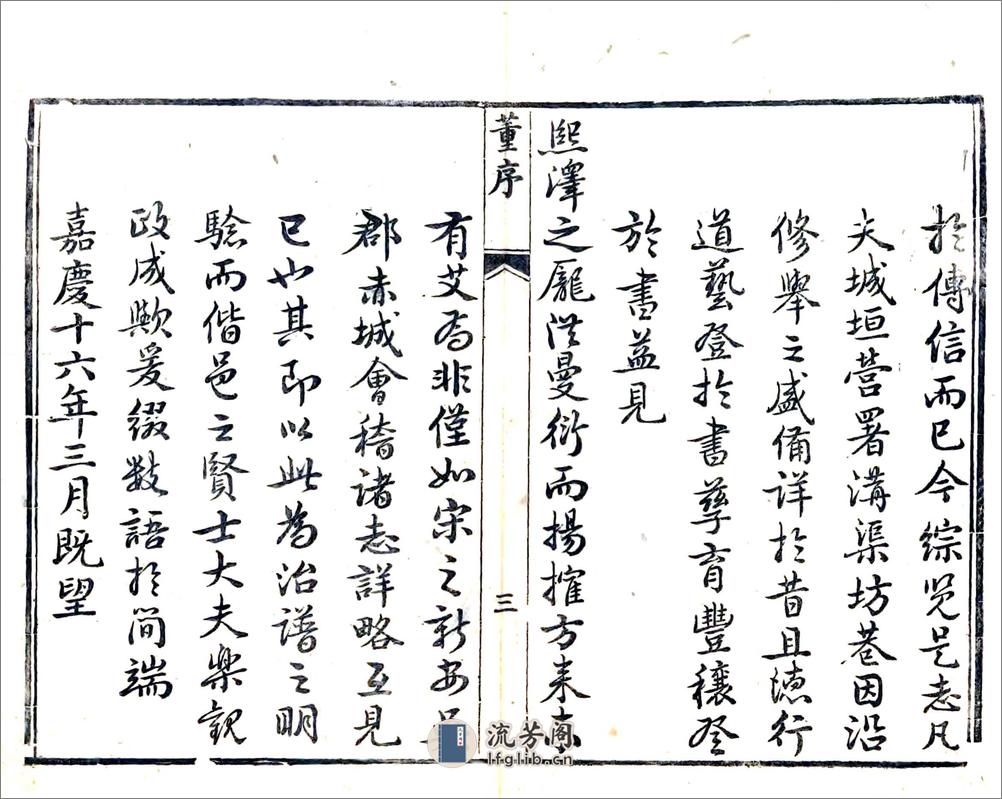 於傳信而已今綜覽是志凡
夫城垣營署溝渠坊巷因沿
修舉之盛備詳於昔且德行
道藝登於書孳育豐穰登
於書益見
熙澤之龎洪曼衍而揚搉方来
董序
三
有艾焉非僅如宋之新安吳
郡赤城會稽諸志詳略互見
已也其即以此為治譜之明
驗而偕邑之賢士大夫樂觀
政成歟爰綴數語於簡端
嘉慶十六年三月既望
流芳阁
lfglib.cn